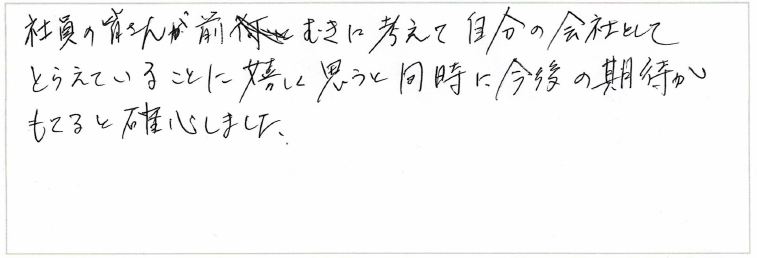 社員の皆さんが前むきに考えて自分の会社として
とらえていることに嬉しく思うと同時に今後の期待が
もてると確心しました。